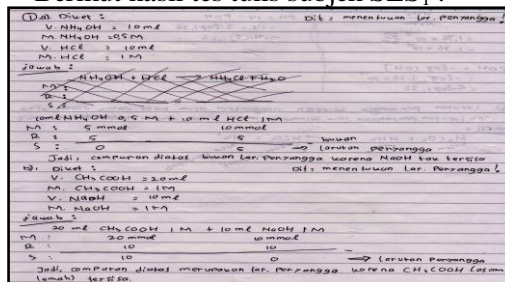 Berikut hasil tes tulis subjek SES1 :
① a) Diket : Dit : menentukan Lar. Penyangga!
V. NH4OH = 10ml
M. NH4OH = 0,5M
V. HCl = 10ml
M. HCl = 1M
Jawab :
NH4OH + HCl → NH4Cl + H2O
M :
R :
S :
10ml NH4OH 0,5 M + 10 ml HCl 1M
M : 5 mmol 10mmol
R : 5 5 bukan
S : 0 5 → larutan penyangga
Jadi, campuran diatas bukan Lar. Penyangga karena NaOH tak tersisa
b). Diket : Dit : menentukan Lar. Penyangga!
V. CH3COOH = 20ml
M. CH3COOH = 1M
V. NaOH = 10ml
M. NaOH = 1M
Jawab :
20 ml CH3COOH 1M + 10 ml NaOH 1M
M : 20 mmol 10 mmol
R : 10 10
S : 10 0 → larutan Penyangga
Jadi, campuran diatas merupakan lar. Penyangga karena CH3COOH (asam
lemah) tersisa.